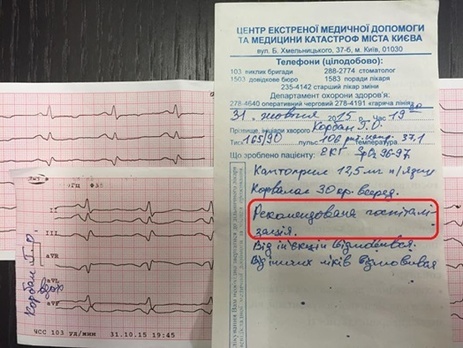 ЦЕНТР ЕКСТРЕНОЇ МЕДИЧНОЇ ДОПОМОГИ
ТА МЕДИЦИНИ КАТАСТРОФ МІСТА КИЄВА
вул. Б. Хмельницького, 37-б, м. Київ, 01030
Телефони (цілодобово):
103 виклик бригади 288-2774 стоматолог
1503 довідкове бюро 1583 поради лікаря
235-4142 старший лікар зміни
Департамент охорони здоров'я:
278-4640 оперативний черговий 278-4191 «гаряча лінія»
31 жовтня 2015 р. Час 19
Прізвище, ініціали хворого Корбан Г.О.
Тиск 165/90 пульс 106 температура 37,1
Що зроблено пацієнту: ЕКГ SpO2 96-97
Каптоприл 12,5 мг п/язик
Корвалол 30 кр. всеред.
Рекомендована госпіталі-
зація.
Від ін'єкцій відмовився.
Від інших ліків відмовився
II
III
aVR
aVL
aVF
Корбан Г.О.
ЧСС 103 уд/мин 31.10.15 19:45